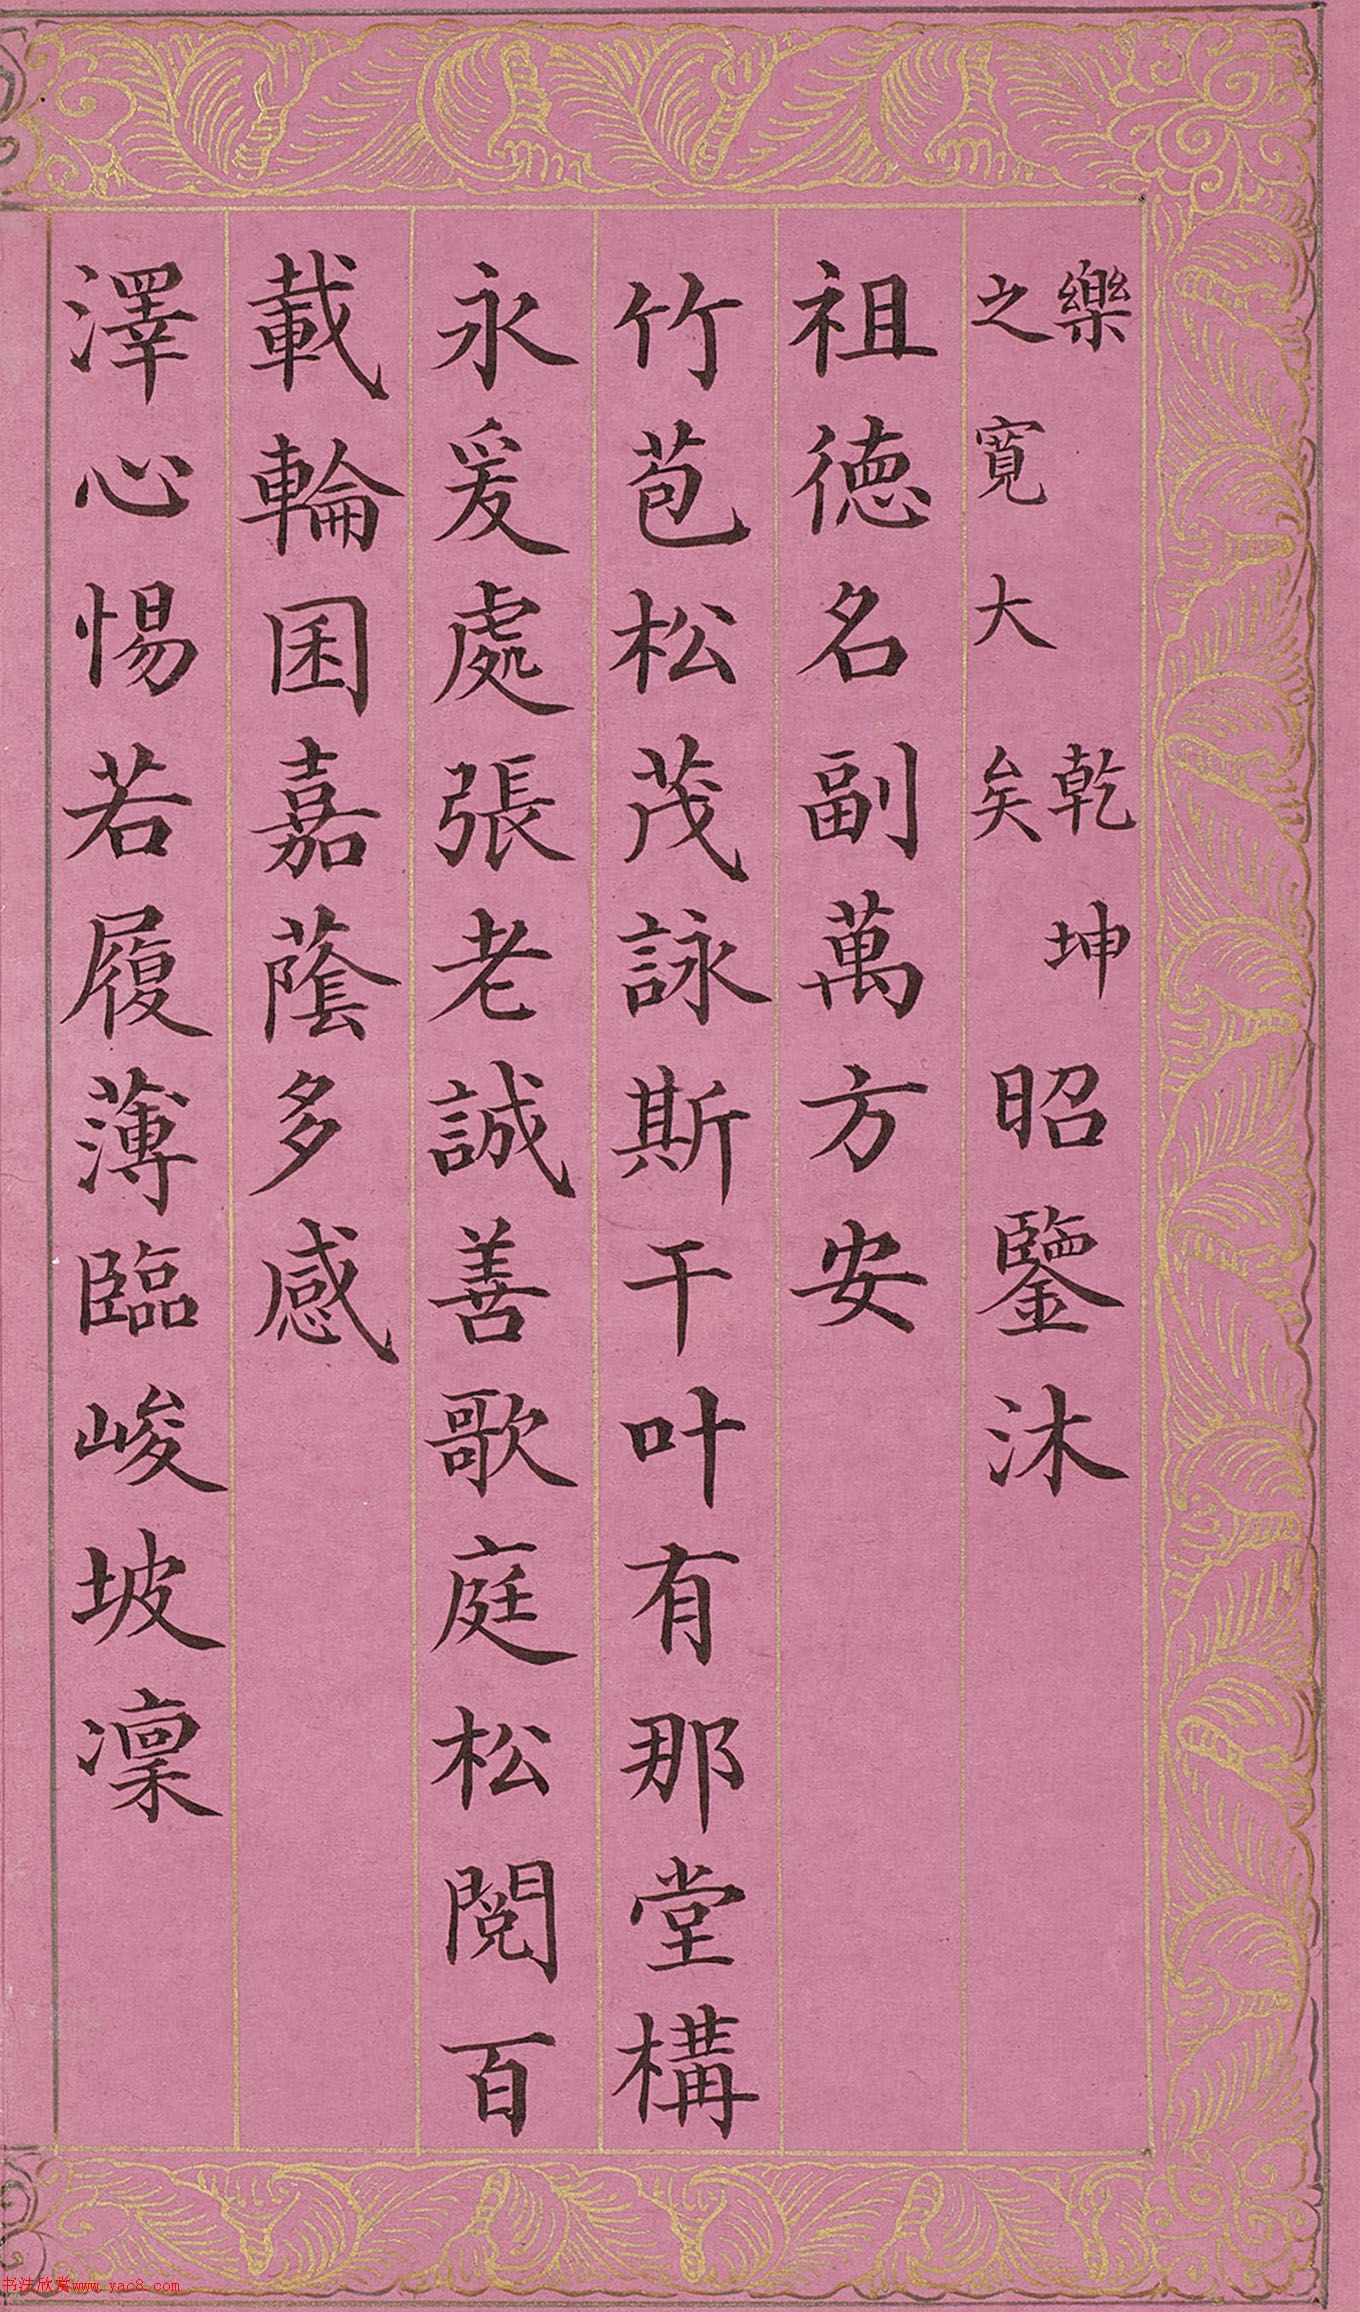 樂乾坤
之寬大矣
昭鑒沐
祖德名副萬方安
竹苞松茂詠斯干叶有那堂構
永爰處張老誠善歌庭松閱百
載輪囷嘉蔭多感
澤心惕若履薄臨峻坡凜
书法欣赏www.yac8.com